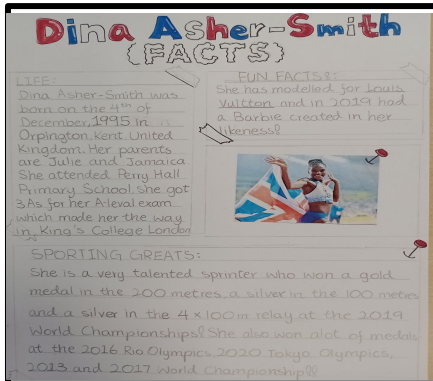 Dina Asher-Smith
(FACTS)
LIFE:
Dina Asher-Smith was
born on the 4th of
December, 1995 in
Orpington, Kent United
Kingdom. Her parents
are Julie and Jamaica
She attended Perry Hall
Primary School. She got
3 As for her A-level exam
which made her the way
in King's College London
FUN FACTS!:
She has modelled for Louis
Vuitton and in 2019 had
a Barbie created in her
likeness!
SPORTING GREATS:
She is a very talented sprinter who won a gold
medal in the 200 metres, a silver in the 100 metres
and a silver in the 4x100m relay at the 2019
World Championships! She also won alot of medals
at the 2016 Rio Olympics, 2020 Tokyo Olympics,
2013 and 2017 World Championship!!